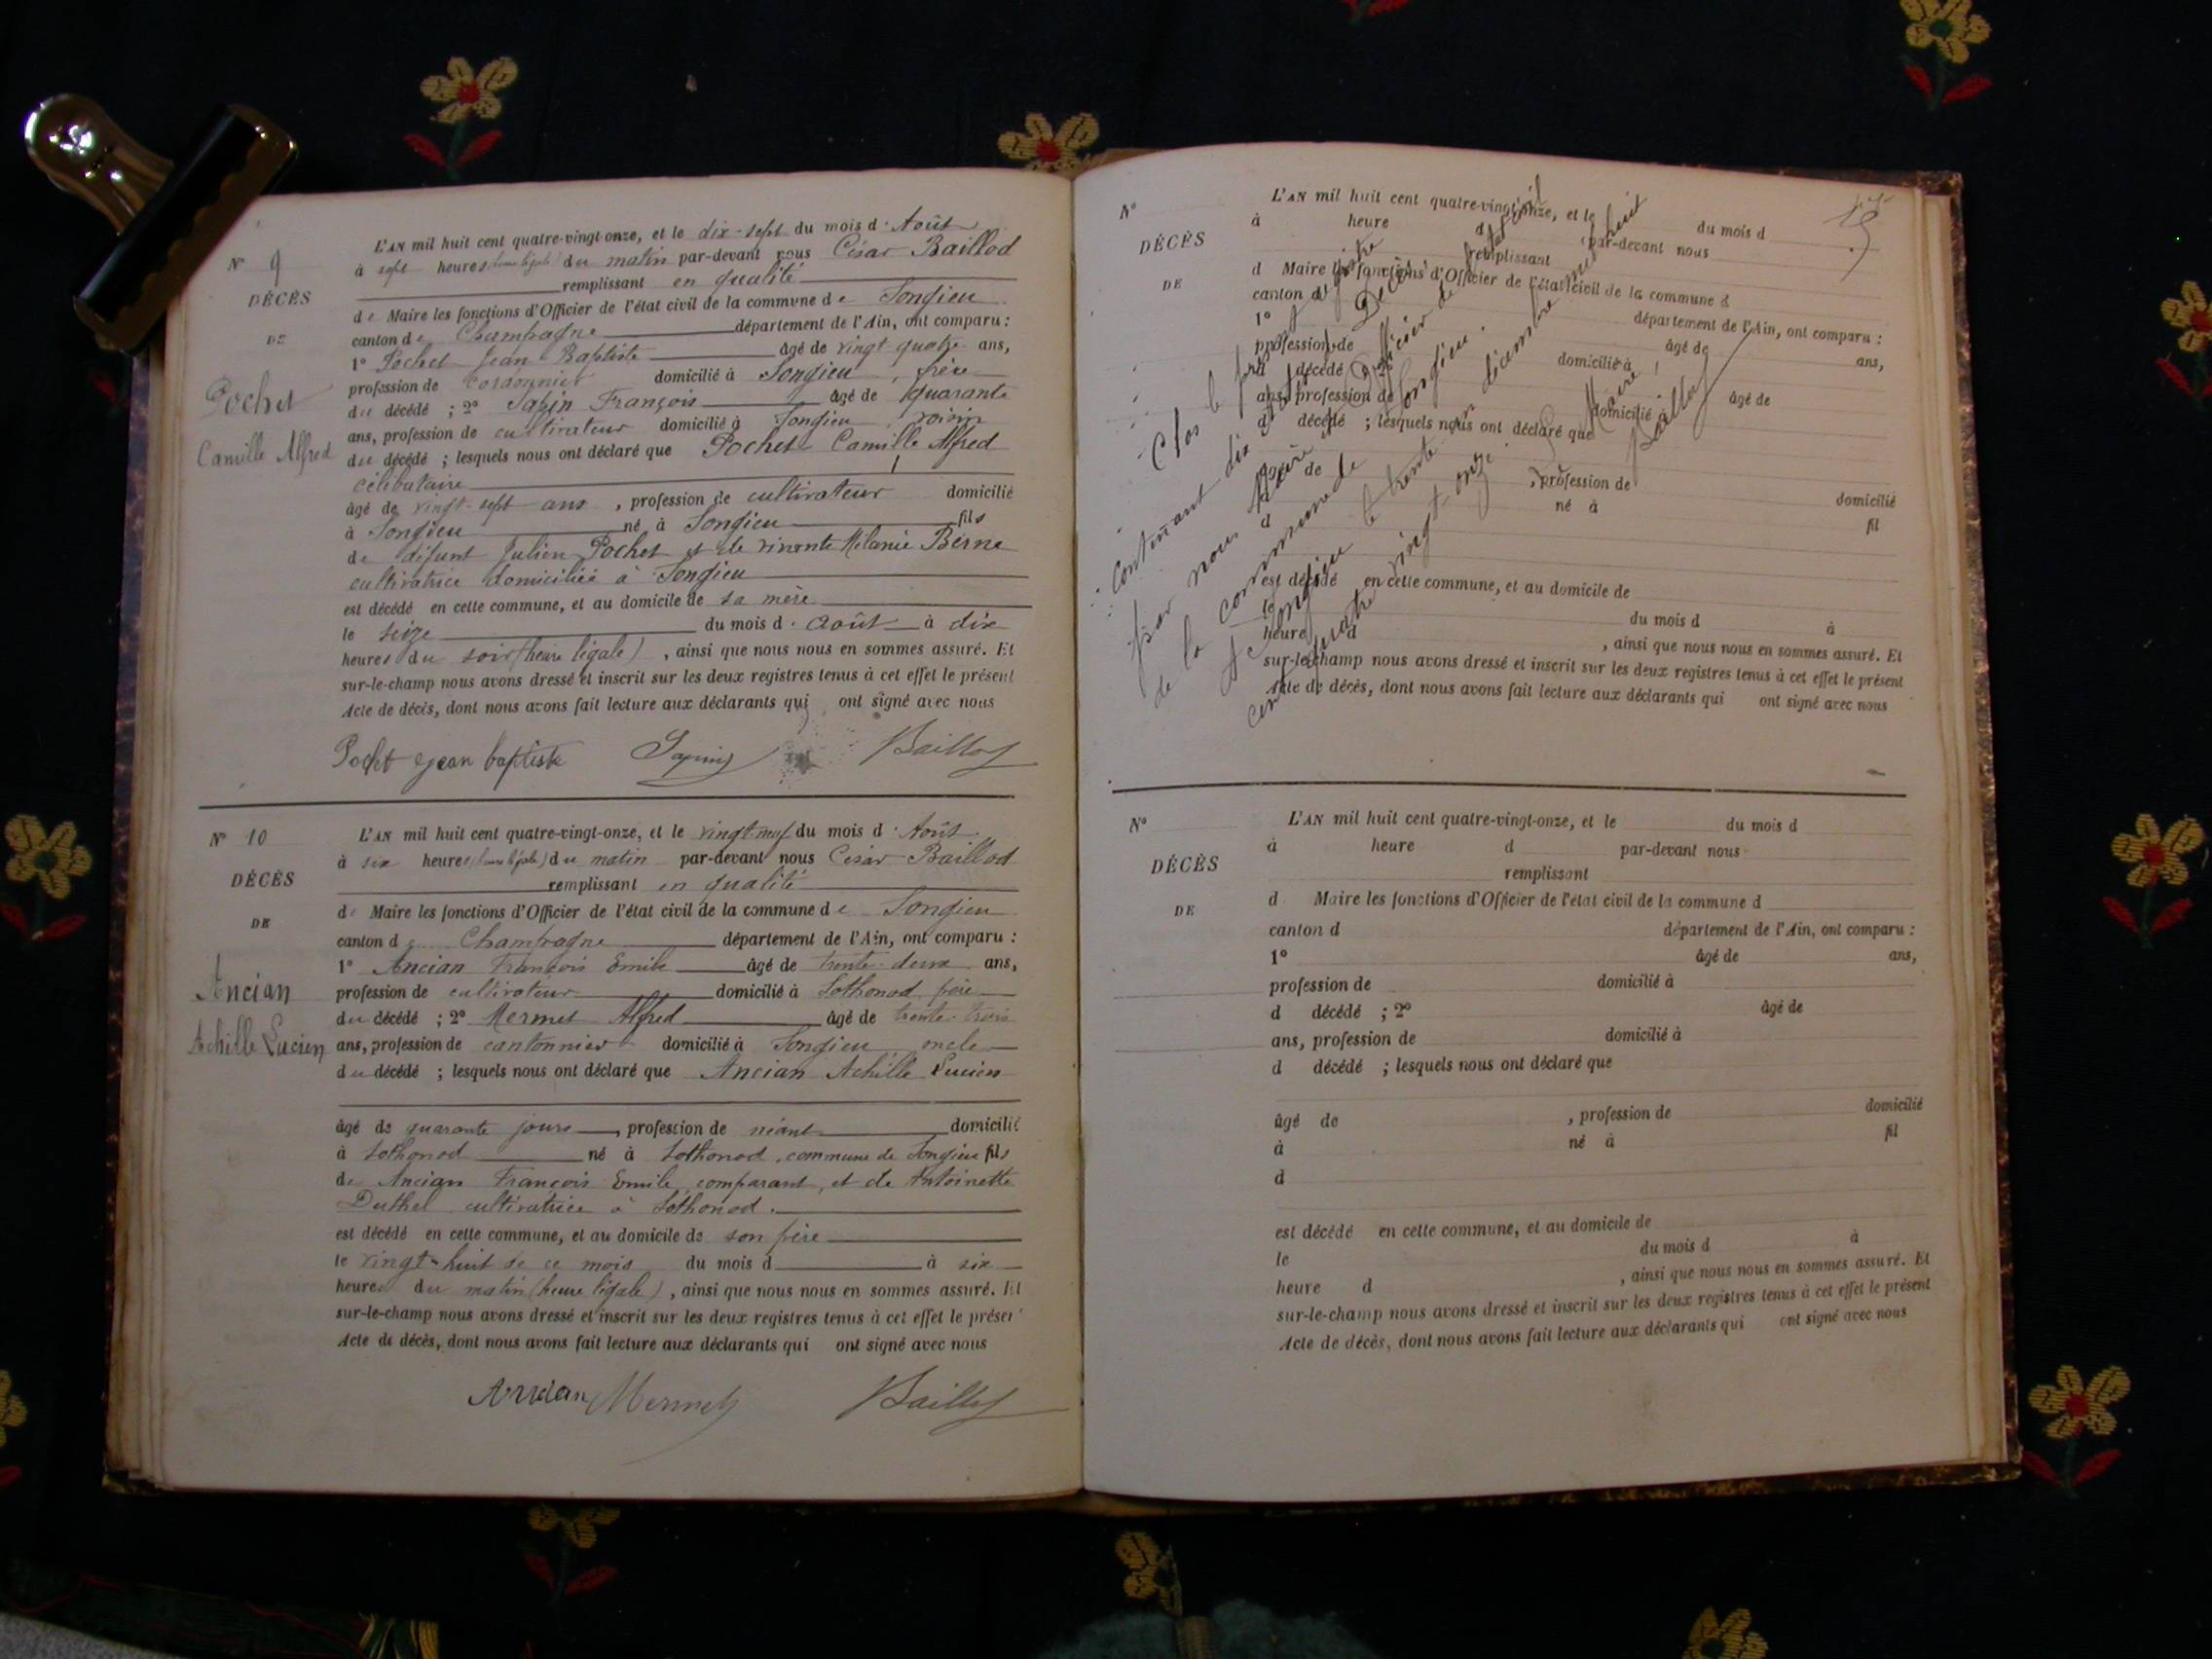 N° 9
DÉCÈS
DE
Pochet
Camille Alfred
L'AN mil huit cent quatre-vingt-onze, et le dix-sept du mois d' Août
à sept heures (heure légale) du matin par-devant nous César Baillod
remplissant en qualité
de Maire les fonctions d'Officier de l'état civil de la commune de Songieu
canton de Champagne département de l'Ain, ont comparu :
1° Pochet Jean Baptiste âgé de vingt quatre ans,
profession de cordonnier domicilié à Songieu, frère
du décédé ; 2° Sapin François âgé de quarante
ans, profession de cultivateur domicilié à Songieu voisin
du décédé ; lesquels nous ont déclaré que Pochet Camille Alfred
célibataire
âgé de vingt-sept ans, profession de cultivateur domicilié
à Songieu né à Songieu fils
de défunt Julien Pochet et de vivante Mélanie Berne
cultivatrice domiciliée à Songieu
est décédé en cette commune, et au domicile de sa mère
le seize du mois d' août à dix
heures du soir (heure légale), ainsi que nous nous en sommes assuré. Et
sur-le-champ nous avons dressé et inscrit sur les deux registres tenus à cet effet le présent
Acte de décès, dont nous avons fait lecture aux déclarants qui ont signé avec nous
Pochet jean baptiste Sapin Baillod
N° 10
DÉCÈS
DE
Ancian
Achille Lucien
L'AN mil huit cent quatre-vingt-onze, et le vingt-neuf du mois d' Août
à six heures (heure légale) du matin par-devant nous César Baillod
remplissant en qualité
de Maire les fonctions d'Officier de l'état civil de la commune de Songieu
canton de Champagne département de l'Ain, ont comparu :
1° Ancian François Emile âgé de trente-deux ans,
profession de cultivateur domicilié à Sothonod père
du décédé ; 2° Mermet Alfred âgé de trente-trois
ans, profession de cantonnier domicilié à Songieu oncle
du décédé ; lesquels nous ont déclaré que Ancian Achille Lucien
âgé de quarante jours, profession de néant domicilié
à Sothonod né à Sothonod, commune de Songieu fils
de Ancian François Emile, comparant, et de Antoinette
Duthel cultivatrice à Sothonod.
est décédé en cette commune, et au domicile de son père
le vingt-huit de ce mois du mois d à six
heures du matin (heure légale), ainsi que nous nous en sommes assuré. Et
sur-le-champ nous avons dressé et inscrit sur les deux registres tenus à cet effet le présen
Acte de décès, dont nous avons fait lecture aux déclarants qui ont signé avec nous
Ancian Mermet Baillod
N°
DÉCÈS
DE
L'AN mil huit cent quatre-vingt-onze, et le du mois d
à heure d par-devant nous
remplissant
d Maire les fonctions d'Officier de l'état civil de la commune d
canton d département de l'Ain, ont comparu :
1° âgé de ans,
profession de domicilié à
d décédé ; 2° âgé de
ans, profession de domicilié à
d décédé ; lesquels nous ont déclaré que
âgé de , profession de domicilié
à né à fil
d
est décédé en cette commune, et au domicile de
le du mois d à
heure d , ainsi que nous nous en sommes assuré. Et
sur-le-champ nous avons dressé et inscrit sur les deux registres tenus à cet effet le présent
Acte de décès, dont nous avons fait lecture aux déclarants qui ont signé avec nous
Clos le registre
contenant dix Décès
par nous Maire Officier de l'état civil
de la commune de Songieu.
A Songieu le trente un décembre mil huit
cent quatre vingt onze.
Le Maire
Baillod
N°
DÉCÈS
DE
L'AN mil huit cent quatre-vingt-onze, et le du mois d
à heure d par-devant nous
remplissant
d Maire les fonctions d'Officier de l'état civil de la commune d
canton d département de l'Ain, ont comparu :
1° âgé de ans,
profession de domicilié à
d décédé ; 2° âgé de
ans, profession de domicilié à
d décédé ; lesquels nous ont déclaré que
âgé de , profession de domicilié
à né à fil
d
est décédé en cette commune, et au domicile de
le du mois d à
heure d , ainsi que nous nous en sommes assuré. Et
sur-le-champ nous avons dressé et inscrit sur les deux registres tenus à cet effet le présent
Acte de décès, dont nous avons fait lecture aux déclarants qui ont signé avec nous